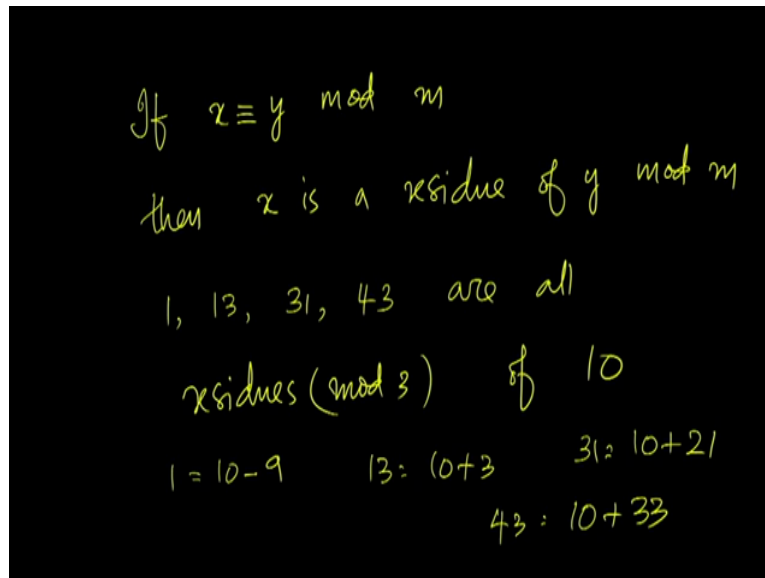 If x ≡ y mod m
then x is a residue of y mod m
1, 13, 31, 43 are all
residues (mod 3) of 10
1 = 10-9 13 = 10+3 31 = 10+21
43 = 10+33